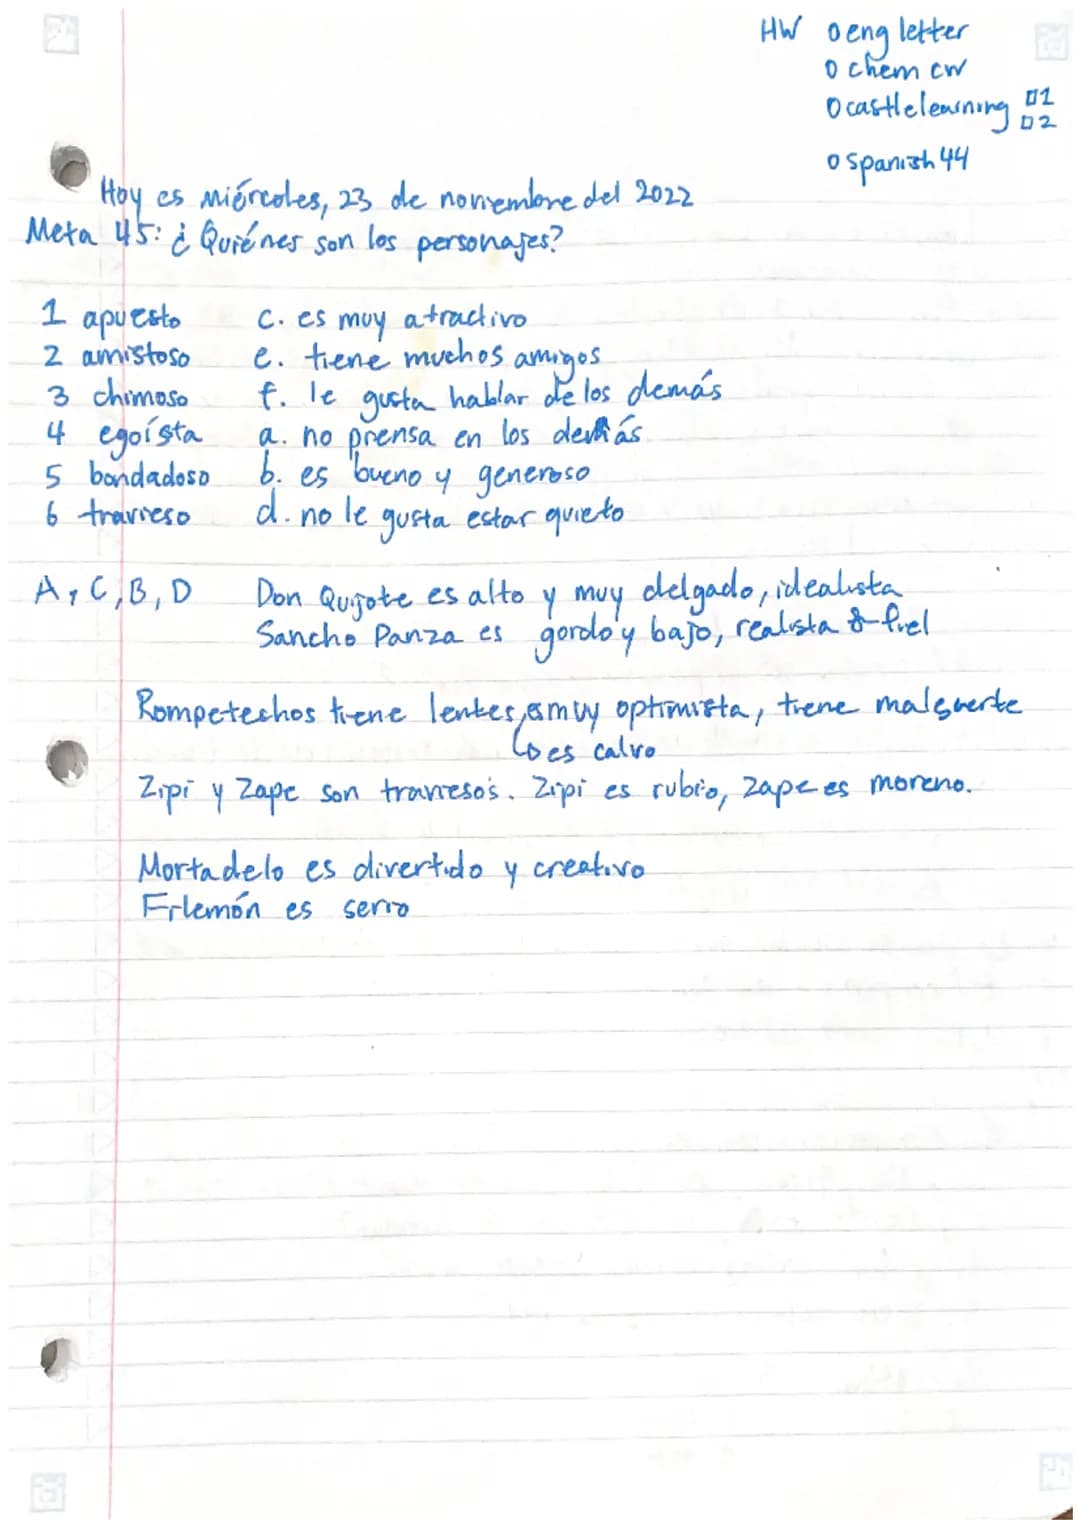 HW o eng letter
o chem cw
o castlelearning □1
□2
o spanish 44
Hoy es miércoles, 23 de noviembre del 2022
Meta 45: ¿Quiénes son los personajes?
1 apuesto c. es muy atractivo
2 amistoso e. tiene muchos amigos
3 chimoso f. le gusta hablar de los demás
4 egoísta a. no prensa en los demás
5 bondadoso b. es bueno y generoso
6 travieso d. no le gusta estar quieto
A, C, B, D Don Quijote es alto y muy delgado, idealista
Sancho Panza es gordo y bajo, realista & fiel
Rompetechos tiene lentes, muy optimista, tiene mal suerte
↳ es calvo
Zipi y Zape son traviesos. Zipi es rubio, Zape es moreno.
Mortadelo es divertido y creativo
Filemón es serio